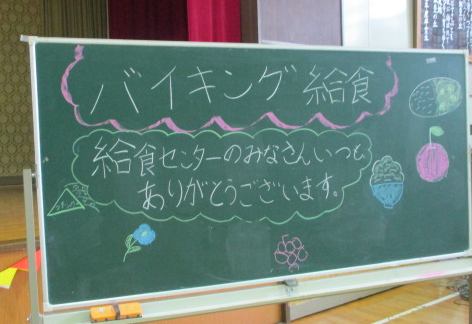 バイキング給食
給食センターのみなさんいつも
ありがとうございます。